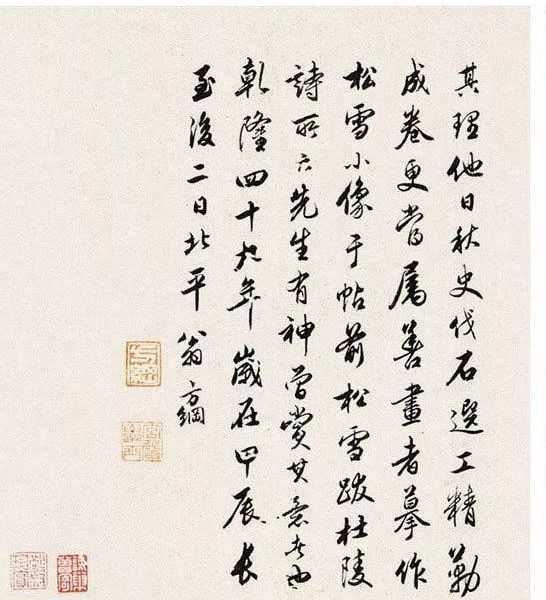 其理他日秋史伐石選工精勒
成卷更當属善畫者摹作
松雪小像于帖前松雪跋杜陵
詩所云先生有神當賞其意者也
乾隆四十九年歲在甲辰長
至後二日北平翁方綱